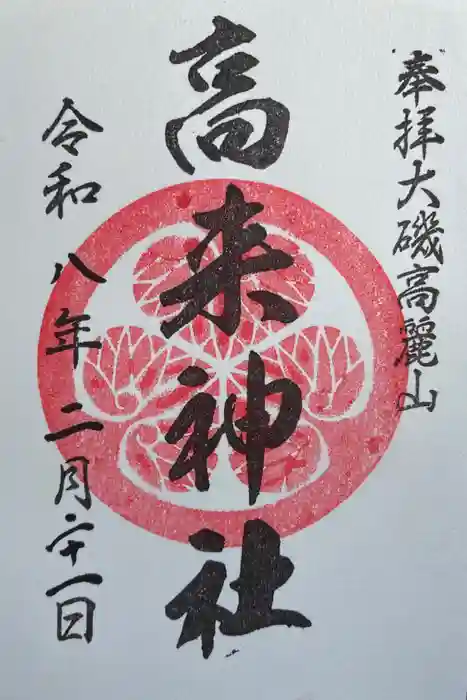 奉拝大磯高麗山
高来神社
令和八年二月二十一日